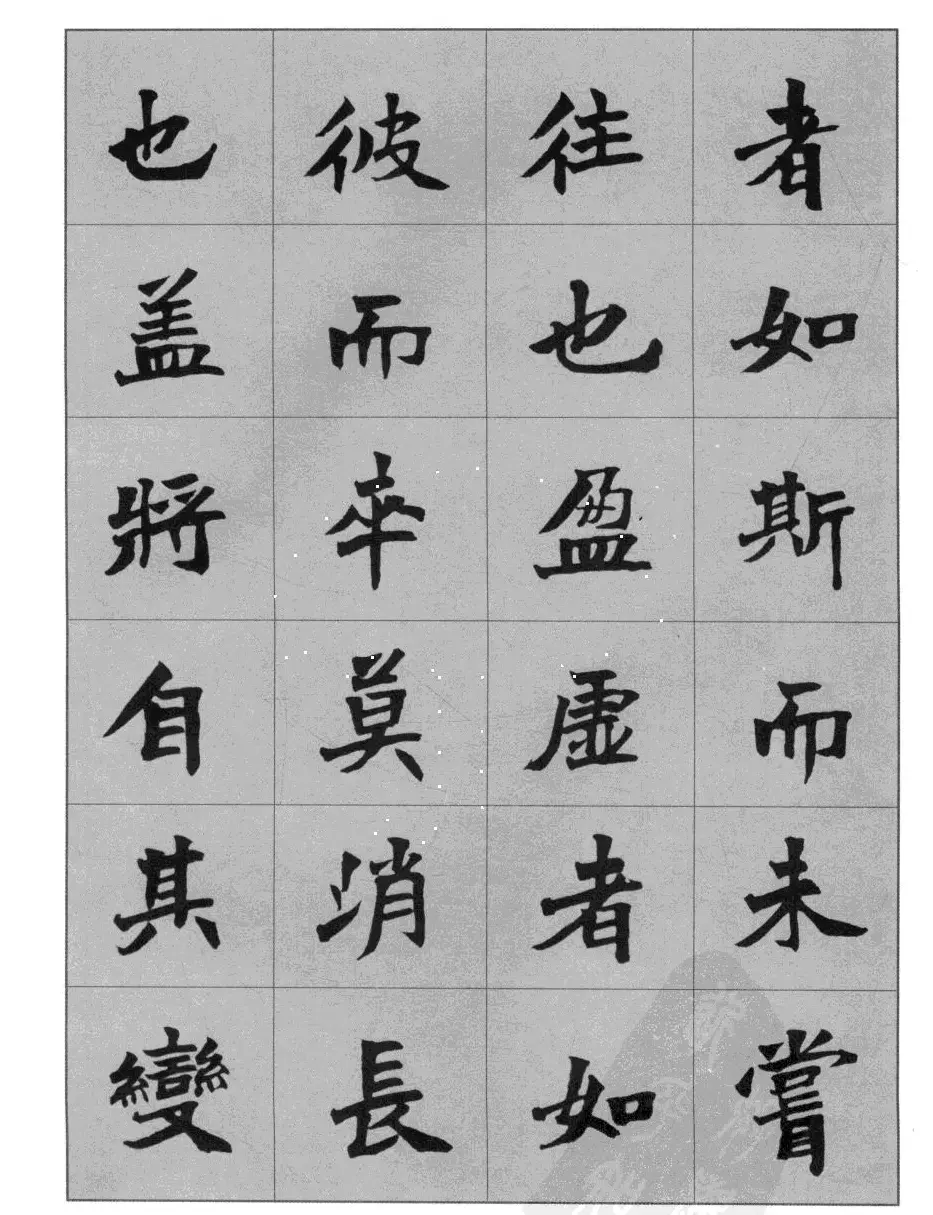 者如斯而未嘗
往也盈虛者如
彼而卒莫消長
也盖將自其變